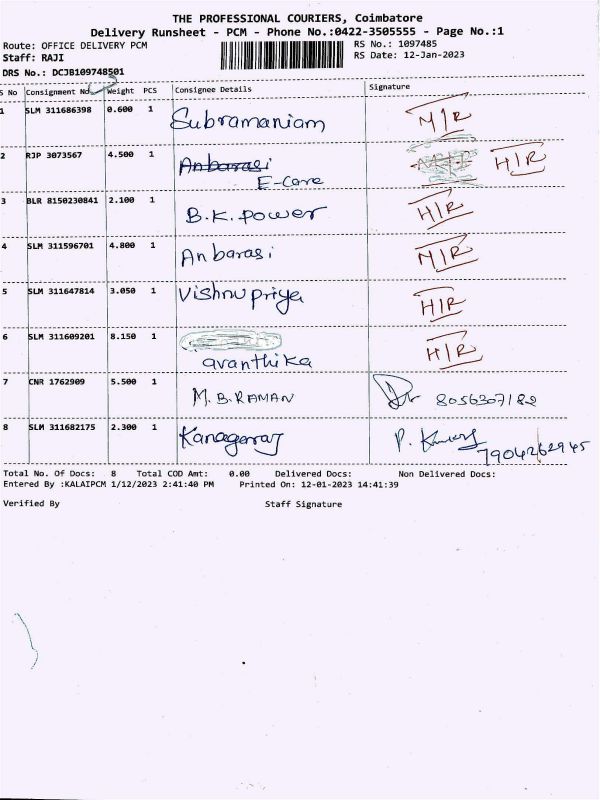 THE PROFESSIONAL COURIERS, Coimbatore
Delivery Runsheet - PCM - Phone No.:0422-3505555 - Page No.:1
Route: OFFICE DELIVERY PCM RS No.: 1097485
Staff: RAJI RS Date: 12-Jan-2023
DRS No.: DCJB109748501
S No Consignment No. Weight PCS Consignee Details Signature
1 SLM 311686398 0.600 1 Subramaniam M/R
2 RJP 3073567 4.500 1 Anbarasi H/R
E-Care
3 BLR 8150230841 2.100 1 B.K. power H/R
4 SLM 311596701 4.800 1 Anbarasi M/R
5 SLM 311647814 3.050 1 Vishnu priya H/R
6 SLM 311609201 8.150 1 H/R
avanthika
7 CNR 1762909 5.500 1 M.B.RAMAN 8056307182
8 SLM 311682175 2.300 1 Kanagaraj 7904262945
Total No. Of Docs: 8 Total COD Amt: 0.00 Delivered Docs: Non Delivered Docs:
Entered By :KALAIPCM 1/12/2023 2:41:40 PM Printed On: 12-01-2023 14:41:39
Verified By Staff Signature